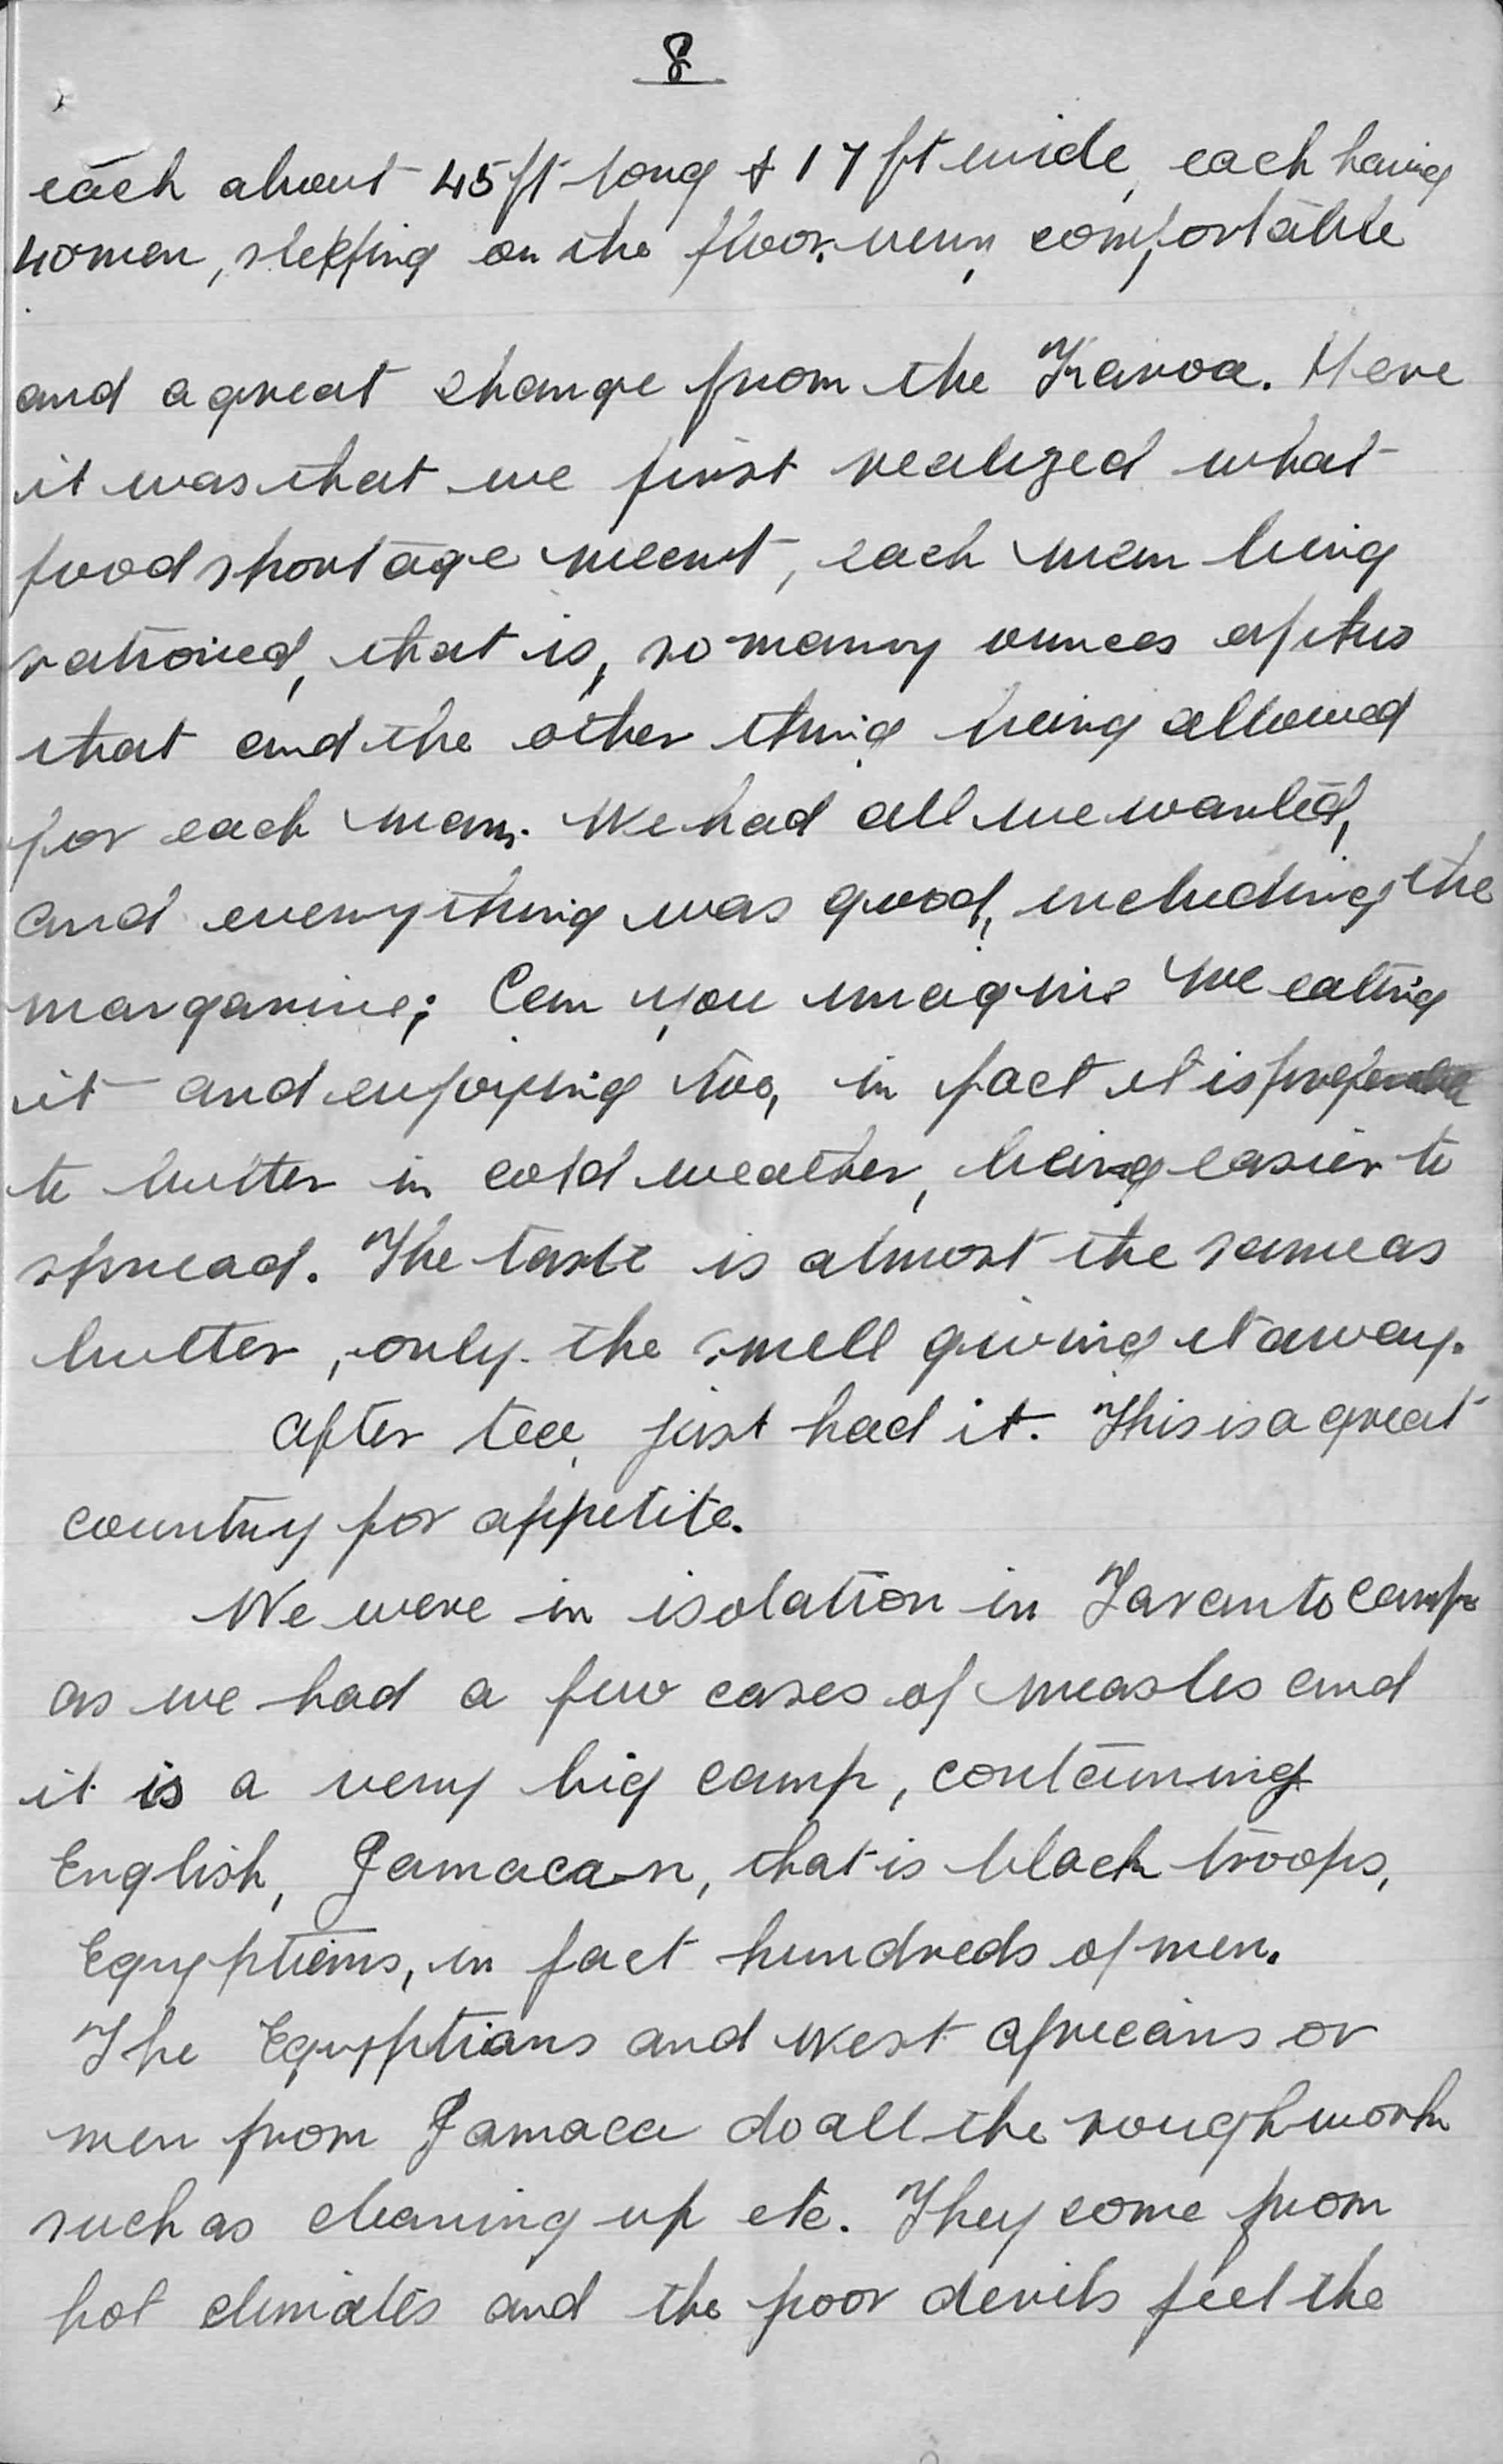 8
each about 45ft long & 17ft wide, each having
40 men, sleeping on the floor, very comfortable
and a great change from the Karoa. Here
it was that we first realized what
food shortage meant, each man being
rationed, that is, so many ounces of this
that and the other thing being allowed
for each man. We had all we wanted,
and everything was good, including the
margarine; Can you imagine me eating
it and enjoying too, in fact it is preferable
to butter in cold weather, being easier to
spread. The taste is almost the same as
butter, only the smell giving it away.
After tea, just had it. This is a great
country for appetite.
We were in isolation in Taranto camp
as we had a few cases of measles and
it is a very big camp, containing
English, Jamacan, that is black troops,
Egyptians, in fact hundreds of men.
The Egyptians and West Africans or
men from Jamaca do all the rough work
such as cleaning up etc. They come from
hot climates and the poor devils feel the